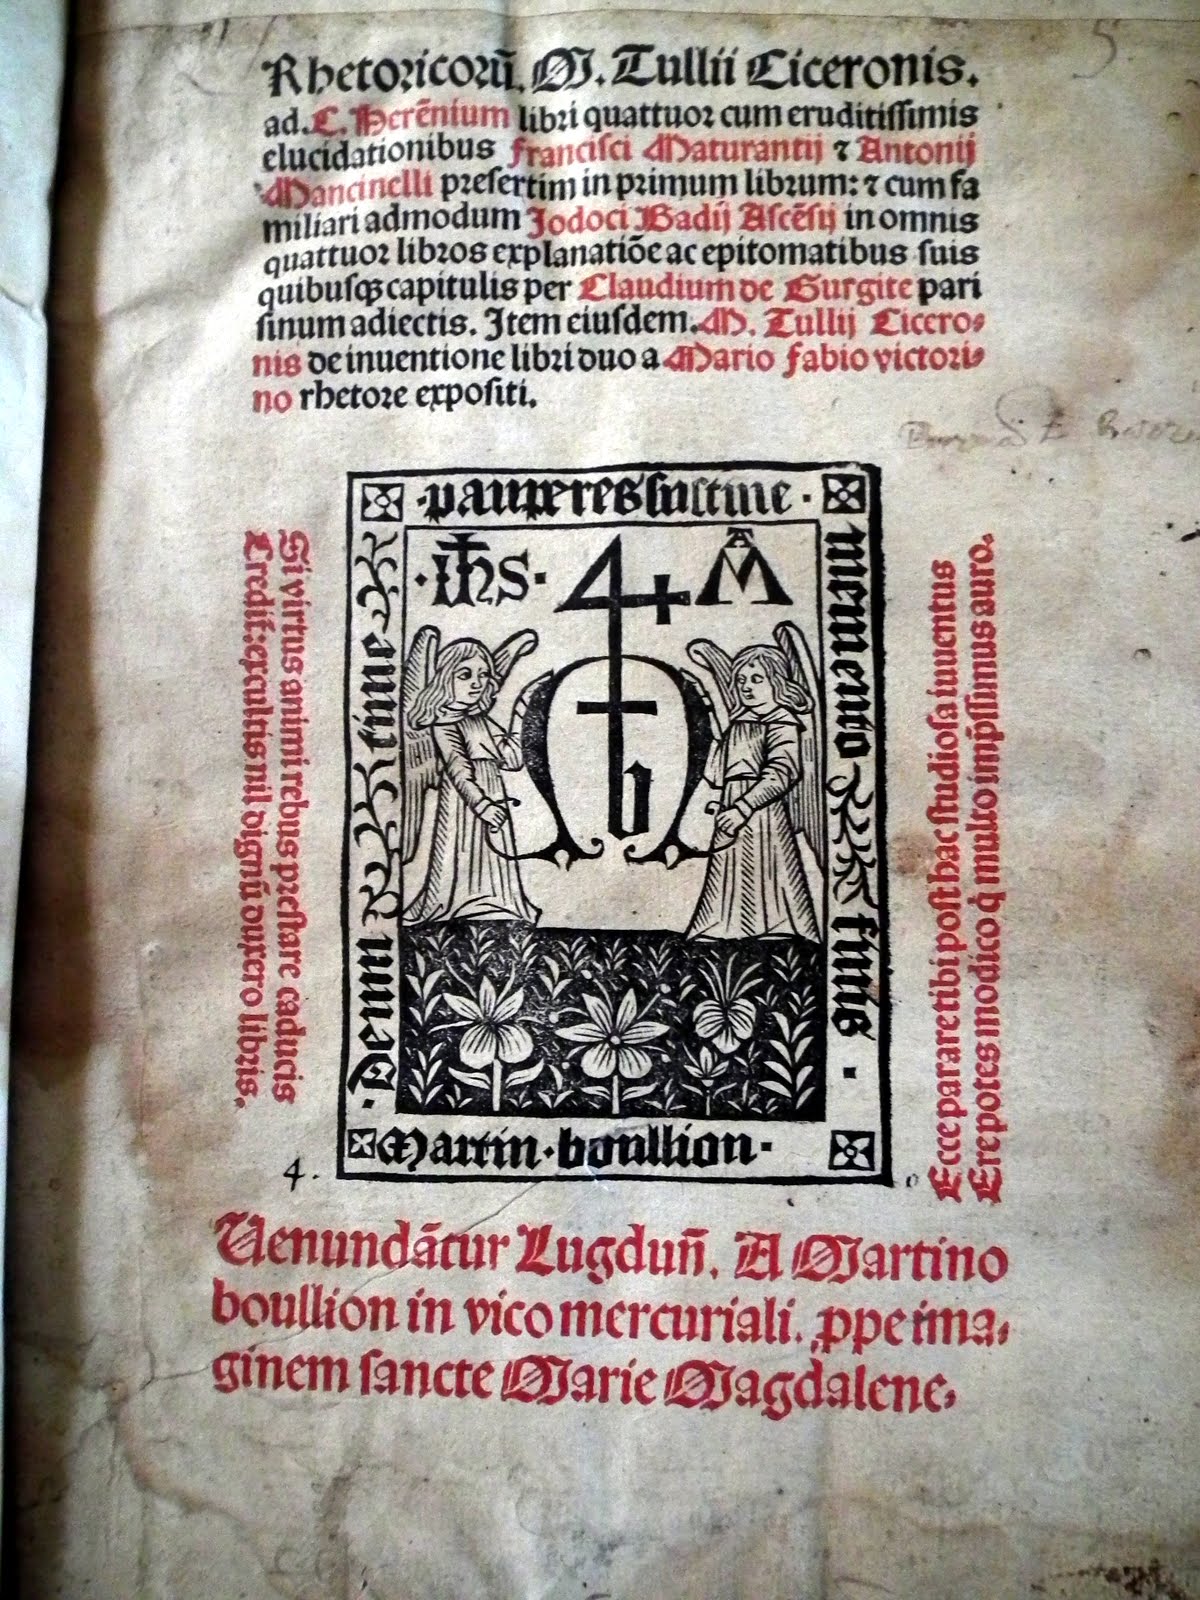 Rhetoricorū. M. Tullii Ciceronis.
ad. C. Herēnium libri quattuor cum eruditissimis
elucidationibus Francisci Maturantij ⁊ Antonij
Mancinelli presertim in primum librum: ⁊ cum fa
miliari admodum Jodoci Badij Ascēsij in omnis
quattuor libros explanatiōe ac epitomatibus suis
quibusqꝫ capitulis per Claudium de Gurgite pari
sinum adiectis. Item eiusdem. M. Tullij Cicero-
nis de inuentione libri duo a Mario Fabio victori-
no rhetore expositi.
Si virtus animi rebus prestare caducis
Credit: excultis nil dignū duxero libris.
·pauperes sustine·
memento finis·
·Deum time
·ihs· A M
M b
Martin·boullion·
Ecce parare tibi post hac studiosa iuuentus
Ere potes modico qd̄ multo imp̄ssimus auro.
4.
5
Uenundātur Lugduñ. A Martino
boullion in vico mercuriali. ꝓpe ima-
ginem sancte Marie Magdalene.